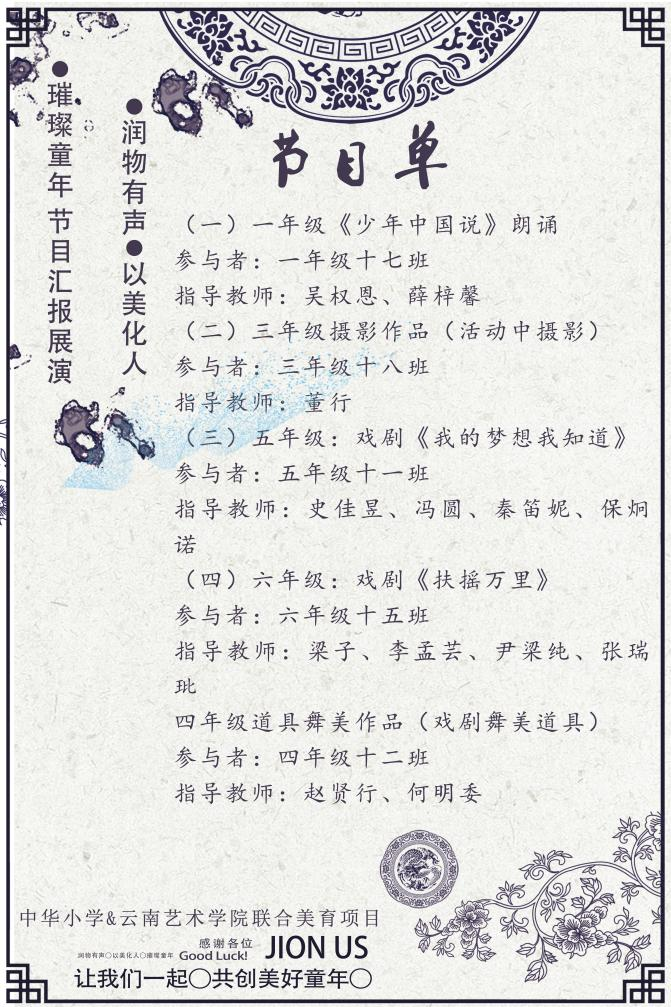 ●璀璨童年 节目汇报展演
●润物有声●以美化人
节目单
（一）一年级《少年中国说》朗诵
参与者：一年级十七班
指导教师：吴权恩、薛梓馨
（二）三年级摄影作品（活动中摄影）
参与者：三年级十八班
指导教师：董行
（三）五年级：戏剧《我的梦想我知道》
参与者：五年级十一班
指导教师：史佳昱、冯圆、秦笛妮、保炯
诺
（四）六年级：戏剧《扶摇万里》
参与者：六年级十五班
指导教师：梁子、李孟芸、尹梁纯、张瑞
玭
四年级道具舞美作品（戏剧舞美道具）
参与者：四年级十二班
指导教师：赵贤行、何明委
中华小学&云南艺术学院联合美育项目
感谢各位
润物有声○以美化人○璀璨童年 Good Luck! JION US
让我们一起○共创美好童年○